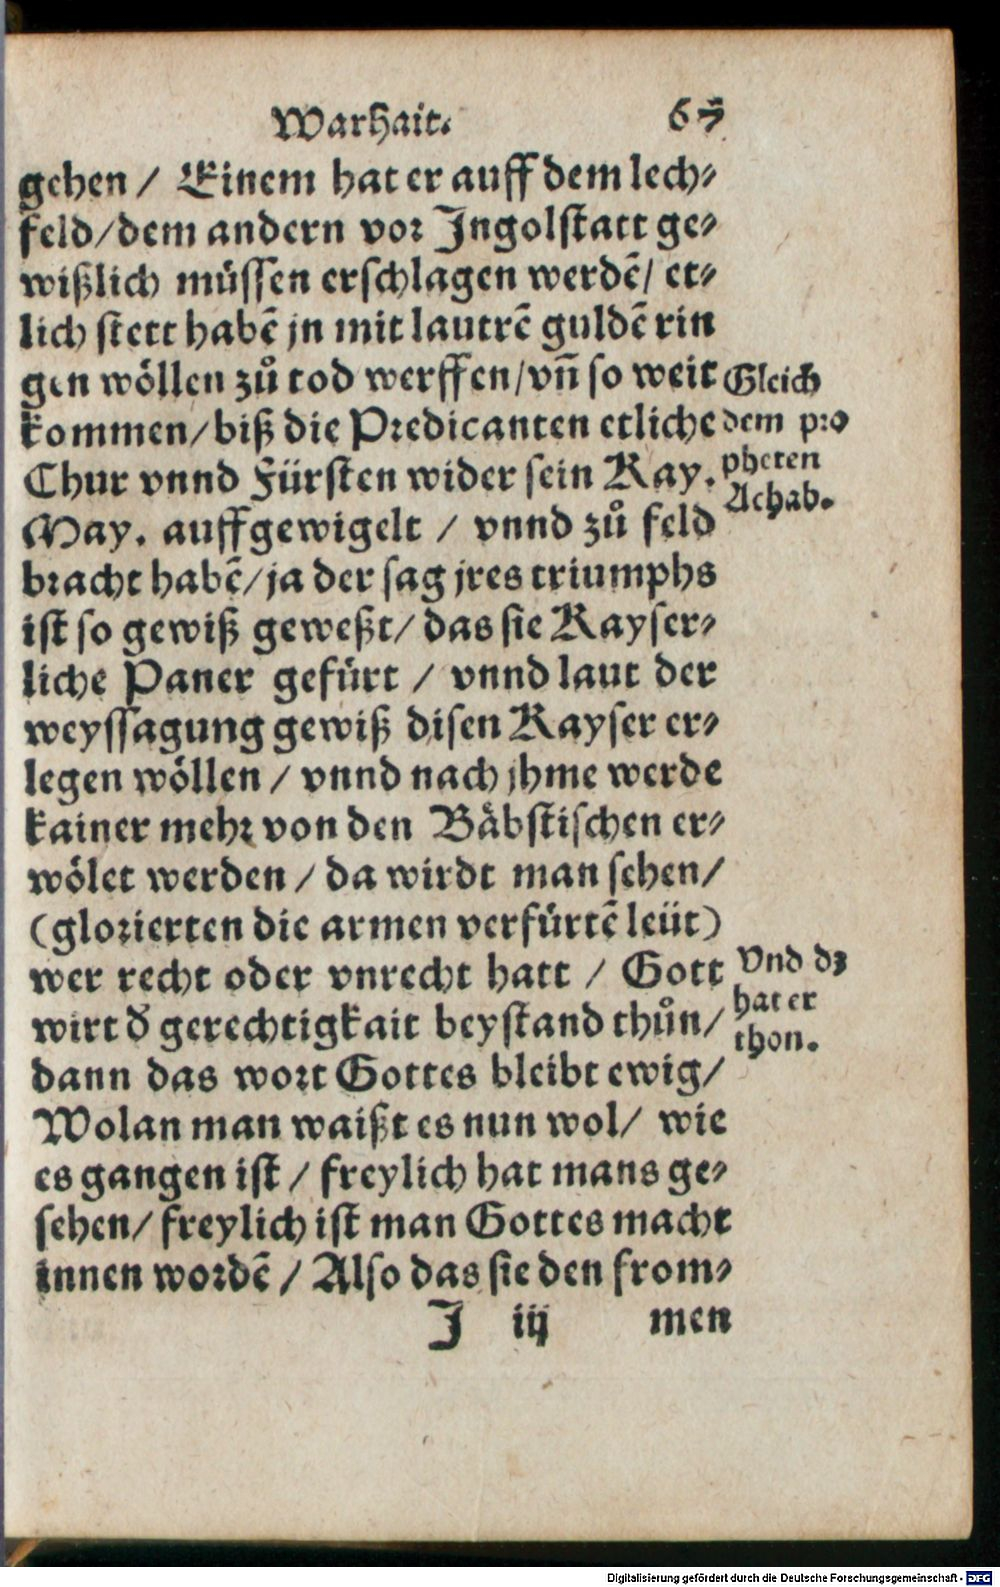 Warhait. 67
gehen / Einem hat er auff dem lech⸗
feld/dem andern vor Jngolſtatt ge⸗
wißlich müſſen erſchlagen werdẽ/ et⸗
lich ſtett habẽ jn mit lautrẽ guldẽ rin
gen wöllen zů tod werffen/vñ ſo weit
kommen/biß die Predicanten etliche
Chur vnnd Fürſten wider ſein Kay.
May. auffgewigelt / vnnd zů feld
bracht habẽ/ja der ſag jres triumphs
iſt ſo gewiß geweßt/ das ſie Kayſer⸗
liche Paner gefürt / vnnd laut der
weyſſagung gewiß diſen Kayſer er⸗
legen wöllen / vnnd nach jhme werde
kainer mehr von den Bäbſtiſchen er⸗
wölet werden / da wirdt man ſehen/
(glorierten die armen verfürtẽ leüt)
wer recht oder vnrecht hatt / Gott
wirt d̕ gerechtigkait beyſtand thůn/
dann das wort Gottes bleibt ewig/
Wolan man waißt es nun wol/ wie
es gangen iſt / freylich hat mans ge⸗
ſehen/ freylich iſt man Gottes macht
innen wordẽ / Alſo das ſie den from⸗
J iij men
Gleich
dem pro
pheten
Achab.
Vnd dz
hat er
thon.
Digitalisierung gefördert durch die Deutsche Forschungsgemeinschaft - DFG